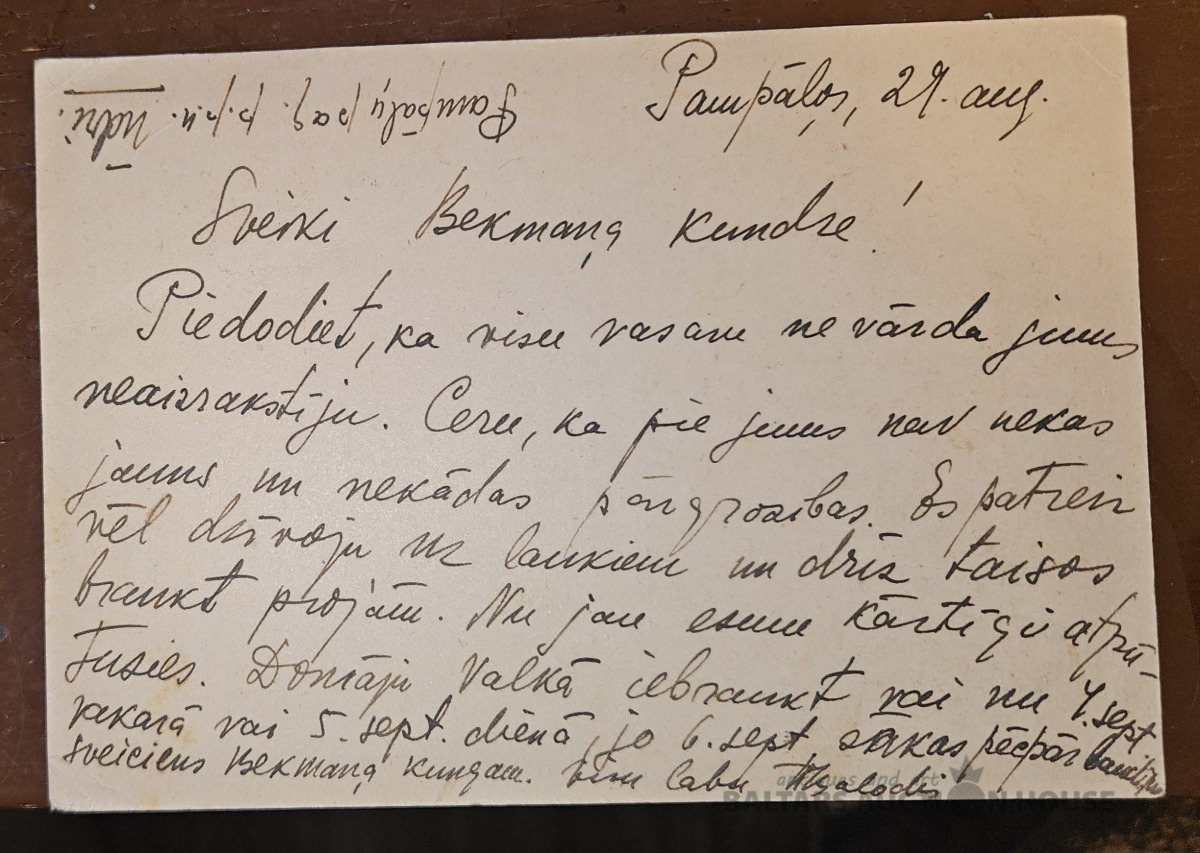 Pampāļos, 29. aug.
Pampāļu pag. p.p.n. Ūdri.
Sveiki Bekmaņa kundze!
Piedodiet, ka visu vasaru ne vārda jums
neaizrakstīju. Ceru, ka pie jums nav nekas
jauns un nekādas pārgrozības. Es patreiz
vēl dzīvoju uz laukiem un drīz taisos
braukt projām. Nu jau esmu kārtīgi atpū-
tusies. Domāju Valkā iebraukt vai nu 4. sept.
vakarā vai 5. sept. dienā, jo 6. sept. sākas pēcpārbaudījumi
Sveiciens Bekmaņa kungam. Visu labu
antiques and art
BALTARS AUCTION HOUSE